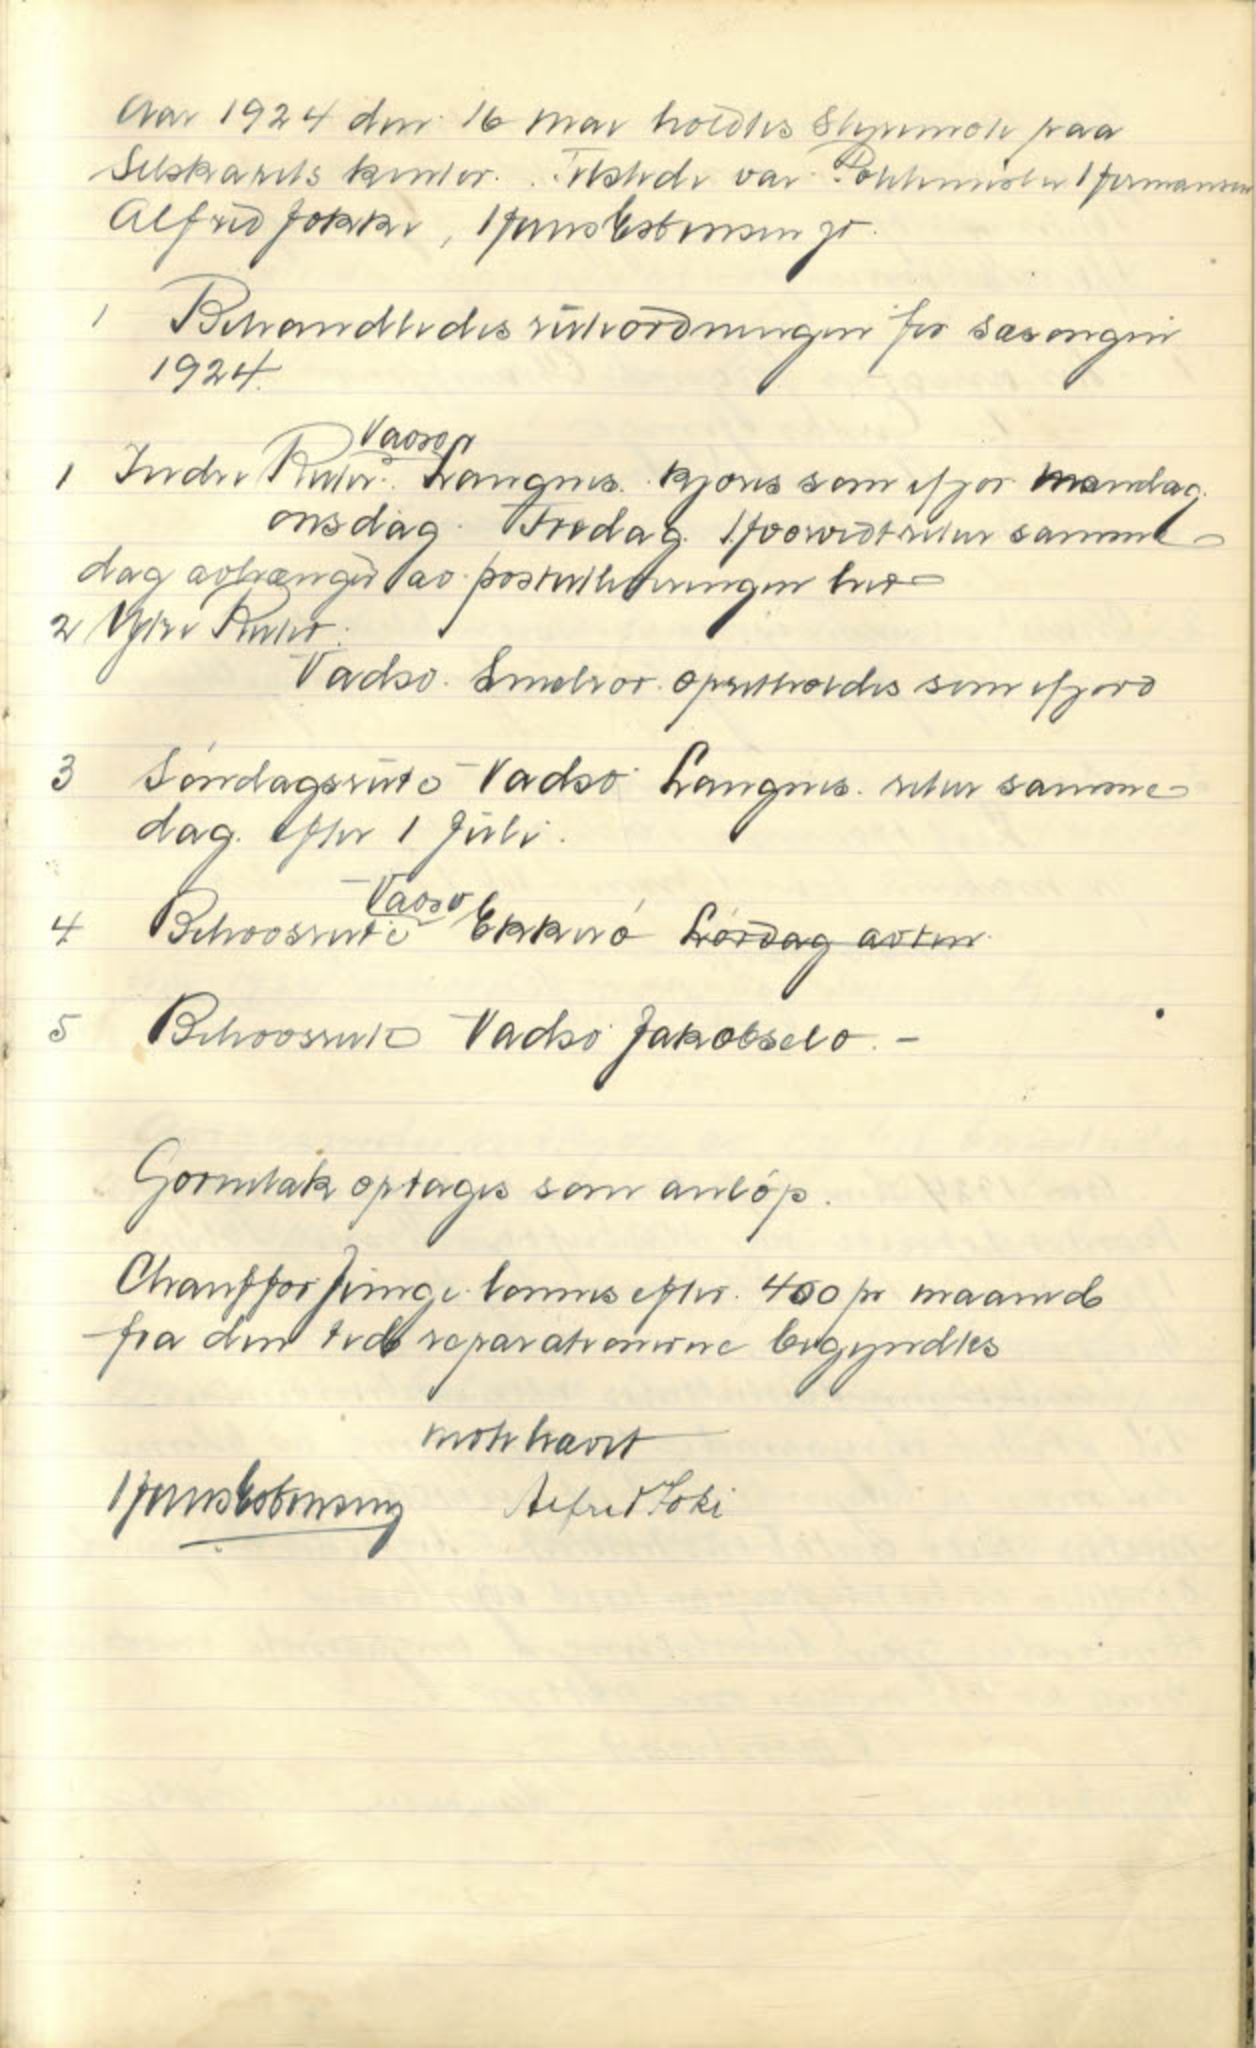 Aar 1924 den 16 mai holdtes Styremöte paa
Selskapets kontor. Tilstede var Politimester Hermansen
Alfred Jokki, Hans Esbensen jr.
1 Behandledes ruteordningen for sæsongen
1924.
Vadsø
1 Indre Rute. Langnes. kjøres som ifjor mandag
onsdag. Fredag. Hvorvidt retur samme
dag avhænger av postutleveringen her
2 Ytre Rute.
Vadsø. Smelror. opretholdes som ifjord
3 Söndagsrute Vadsø Langnes. retur samme
dag. efter 1 Juli.
Vadsø
4 Behovsrute Ekkerö Lördag aften.
5 Behovsrute Vadsø Jakobselv. -
Gornitak optages som anlöp.
Chauffør Jinge lønnes efter. 400 pr maaned
fra den tid reparationerne begyndtes
Møte hævet
Hans Esbensen Alfred Joki